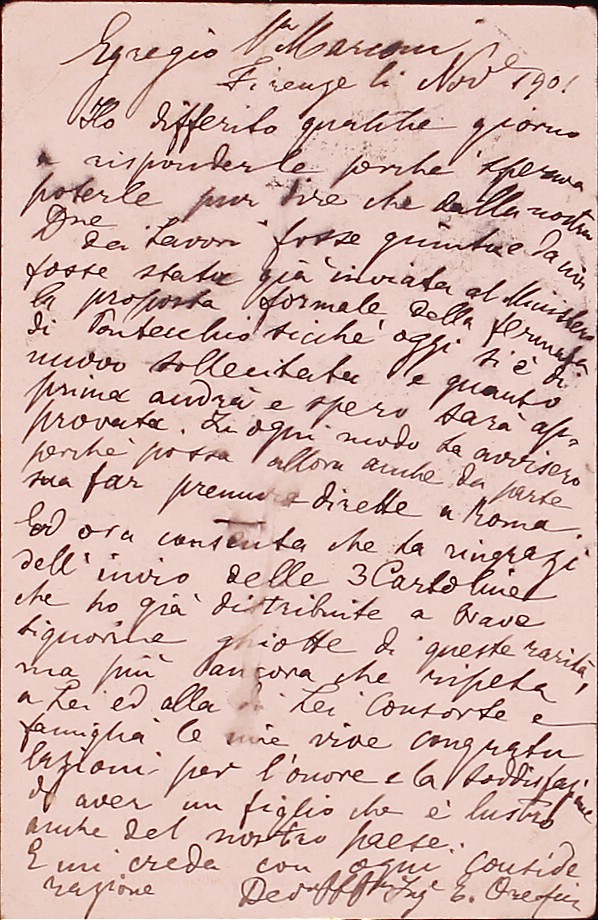 Egregio Sr Marconi
Firenze li Nove 1901
Ho differito qualche giorno
a risponderle perchè sperava
poterle pur dire che dalla nostra
Dne dei Lavori fosse
fosse stata già inviata al Ministero
la proposta formale della fermata
di Pontecchio sicchè oggi si è di
nuovo sollecitata e quanto
prima andrà e spero sarà ap=
provata. In ogni modo La avviserò
perchè possa allora anche da parte
sua far premure dirette a Roma.
Ed ora consenta che La ringrazi
dell'invio delle 3 Cartoline
che ho già distribuite a brave
signorine ghiotte di queste rarità,
ma più ancora che ripeta
a Lei ed alla di Lei Consorte e
famiglia le mie vive congratu
lazioni per l'onore e la soddisfazione
di aver un figlio che è lustro
anche del nostro paese.
E mi creda con ogni conside
razione Ing E.